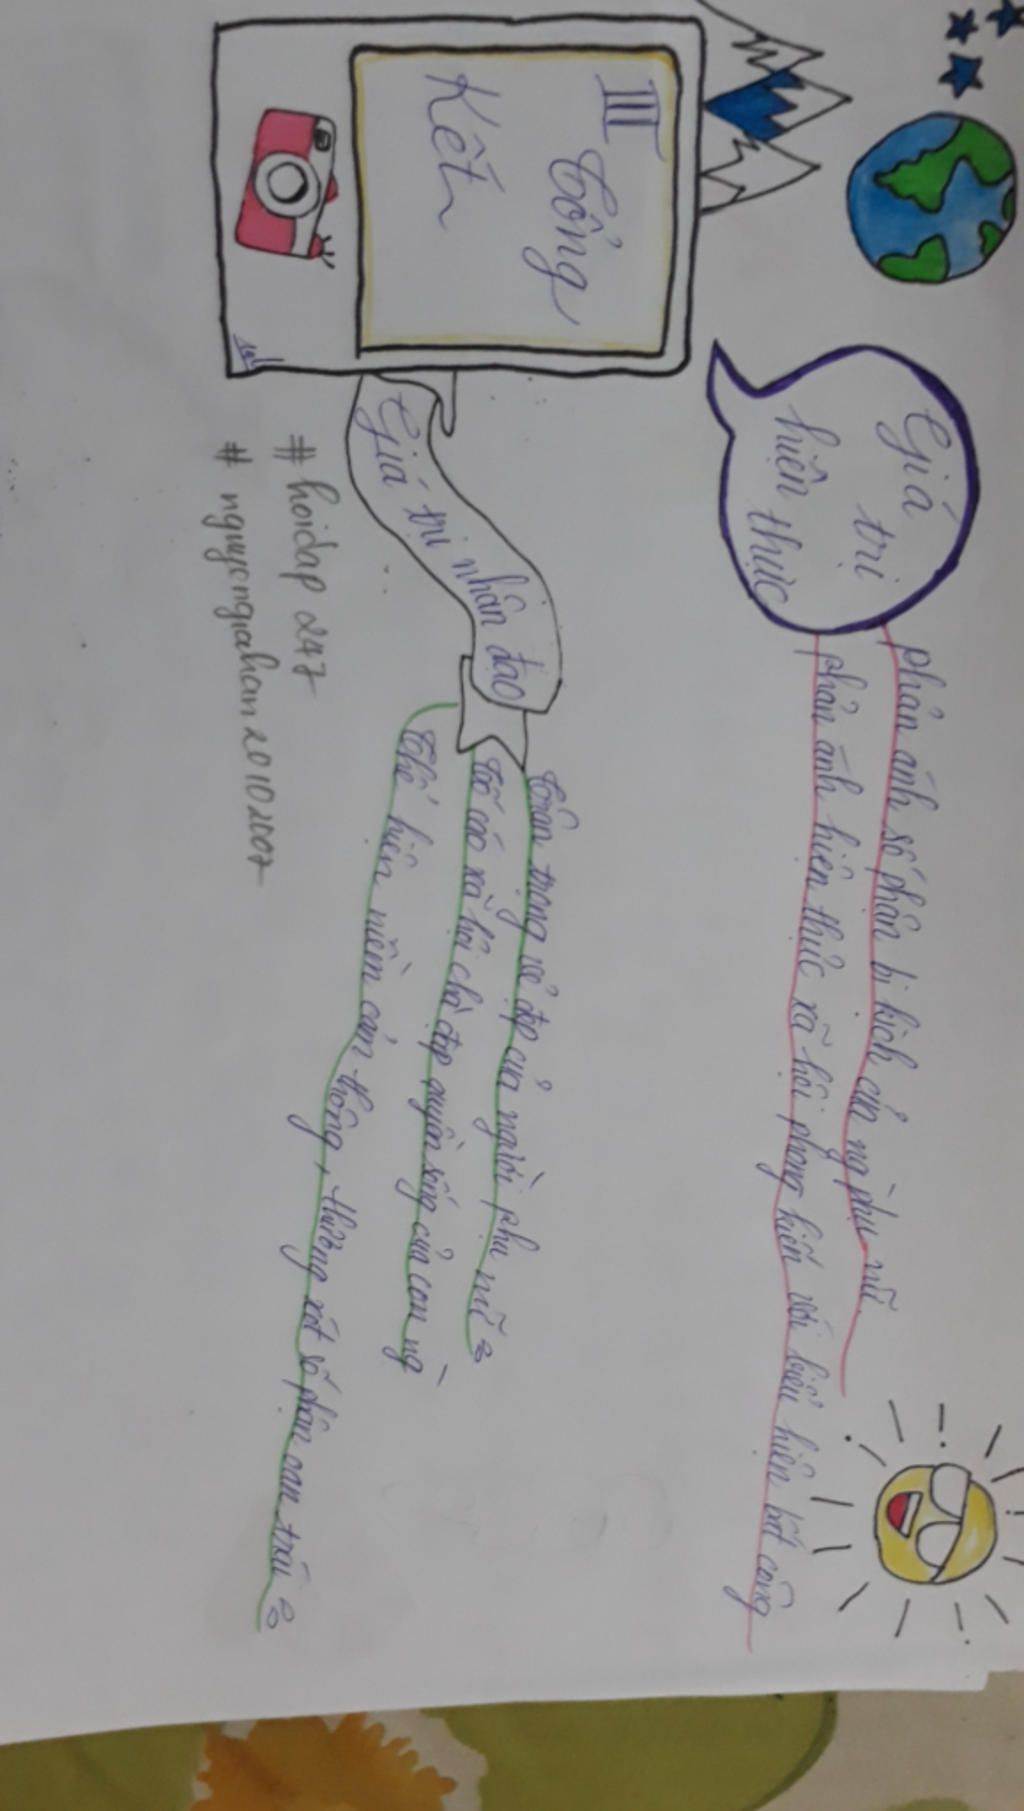 III Tổng
Kết
Giá
trị
hiện thực
phản ánh số phận bi kịch của ng phụ nữ
phản ánh hiện thực xã hội phong kiến với biểu hiện bất công
Giá trị nhân đạo
Trân trọng vẻ đẹp của người phụ nữ
Tố cáo xã hội chà đạp quyền sống của con ng
Thể hiện niềm cảm thông, thương xót số phận oan trái
# hoidap 247
# nguyengiahan20102007